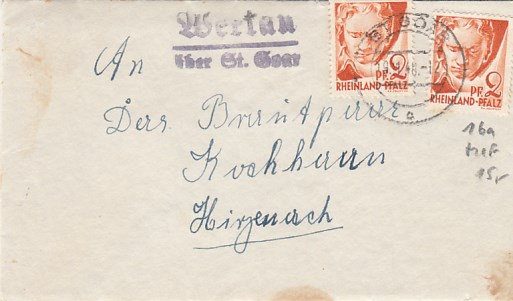 Werlau
über St. Goar
ST. GOAR
PF. 2
RHEINLAND-PFALZ
PF. 2
RHEINLAND-PFALZ
An
Das Brautpaar
Kochhann
Hirzenach
16a
15,-